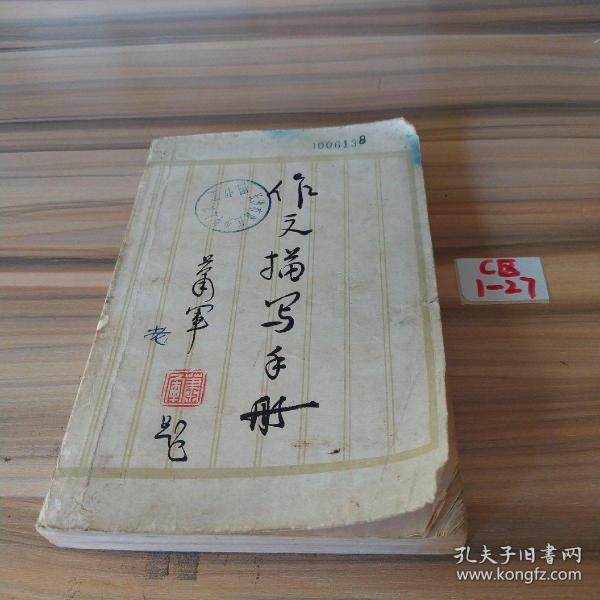 1006138
作文描写手册
萧军
老
萧军
题
C区
1-27
孔夫子旧书网
www.kongfz.com